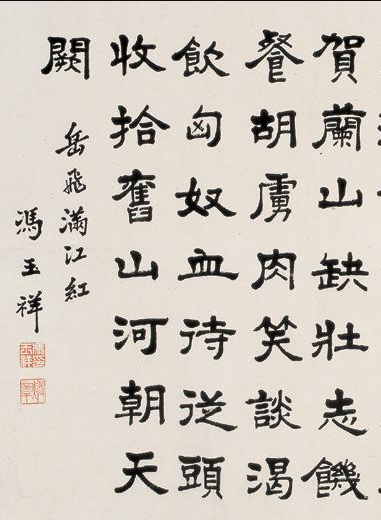 賀蘭山缺壯志饑
餐胡虜肉笑談渴
飲匈奴血待從頭
收拾舊山河朝天
闕
岳飛滿江紅
馮玉祥